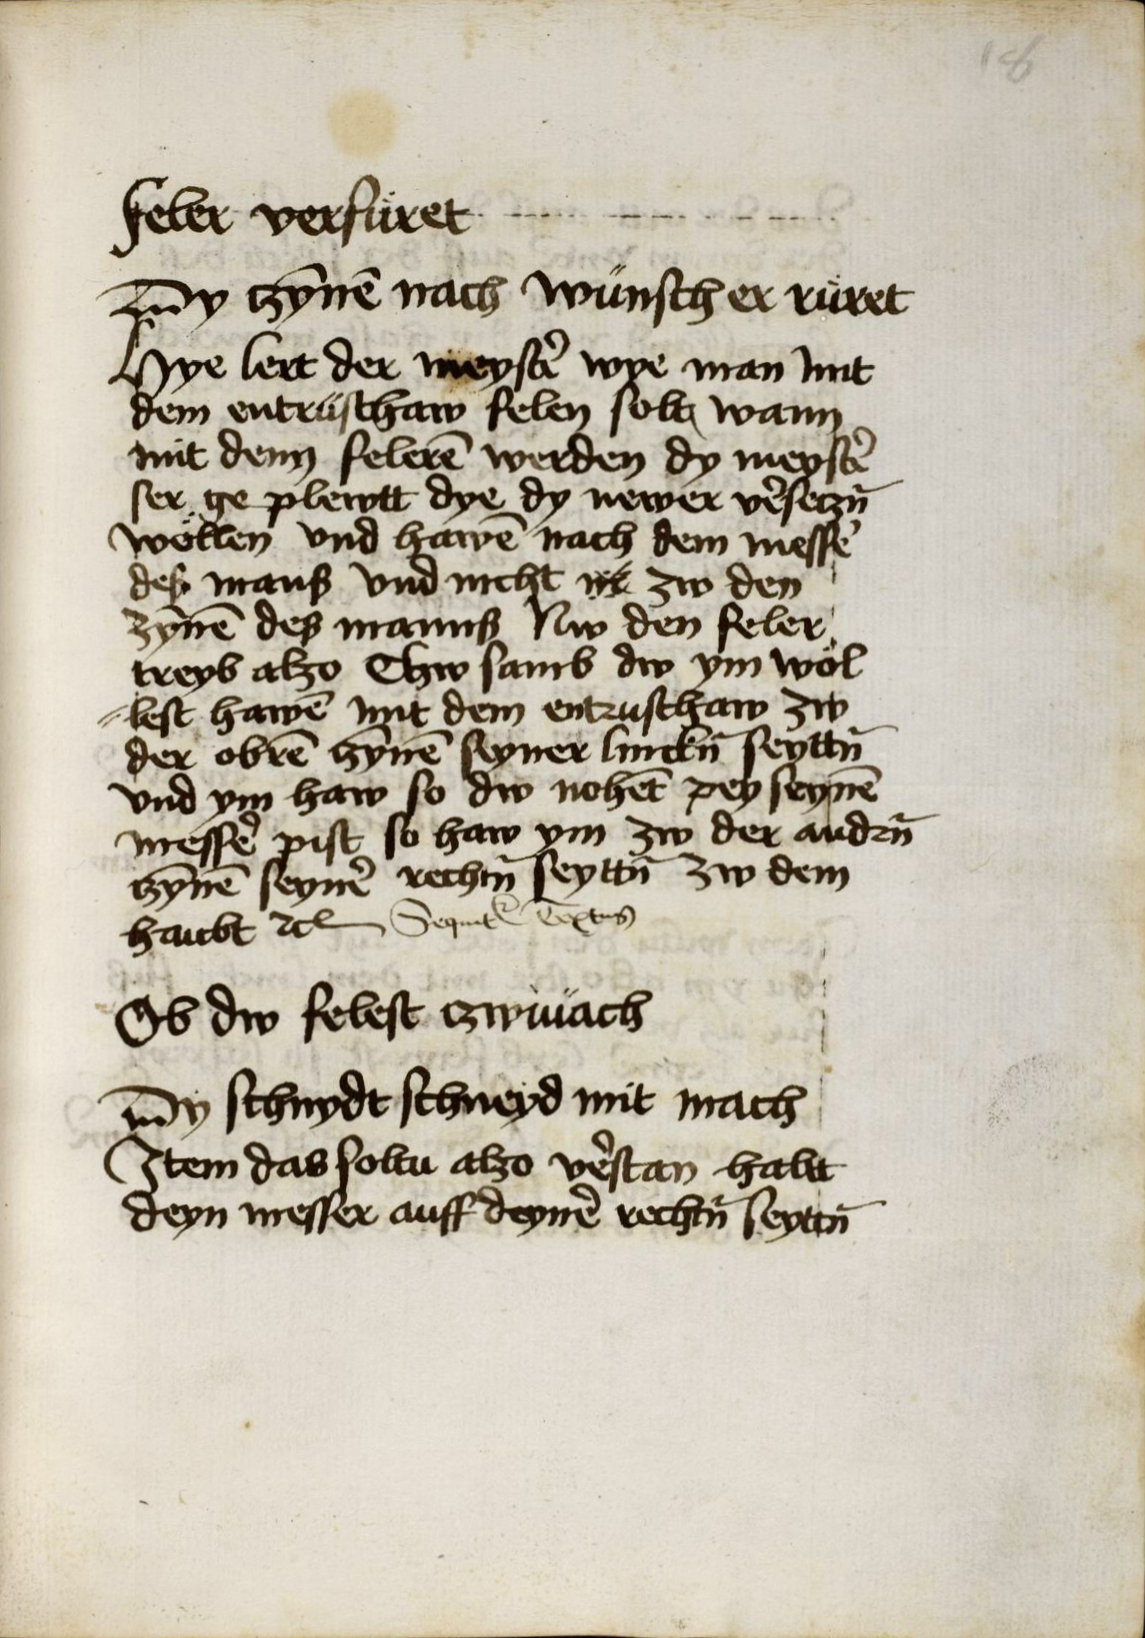 18
Feler verfüret
Dy tzÿnē nach wünsch er rüret
Hye lert der meyst̉ wye man mit
dem entrüsthaw felen solt wann
mit denn felerē werden dy meyst̉
ser ge plewtt dye dy newer v̉seczn̄
wöllen vnd hawē nach dem mess̉
des mans vnd nicht zw den
zÿnē des manns Nw den feler
treyb alzo Thw samb dw ym wöl
=lest hawē mit dem entrusthaw zw
der obrē tzÿnē seyner linckn̄ seyttn̄
vnd ym haw so dw nohēt pey seynē
mess̉ pist so haw ym zw der andrn̄
tzÿnē seyn̉ rechtn̄ seyttn̄ zw dem
haubt ꝛcꝭ Sequit᷑ Textus
Ob dw felest tzwiuach
Dy schnydt schneyd mit mach
Item das soltu alzo v̉stan halt
deyn messer auff deyn̉ rechtn̄ seyttn̄